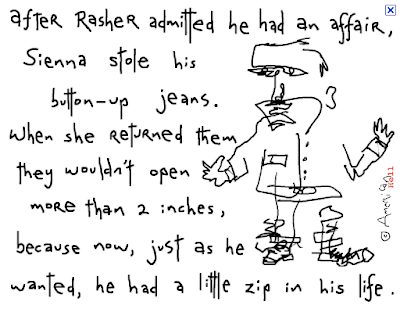 after Rasher admitted he had an affair,
Sienna stole his
button-up jeans.
When she returned them
they wouldn't open
more than 2 inches,
because now, just as he
wanted, he had a little zip in his life.
© American Hell